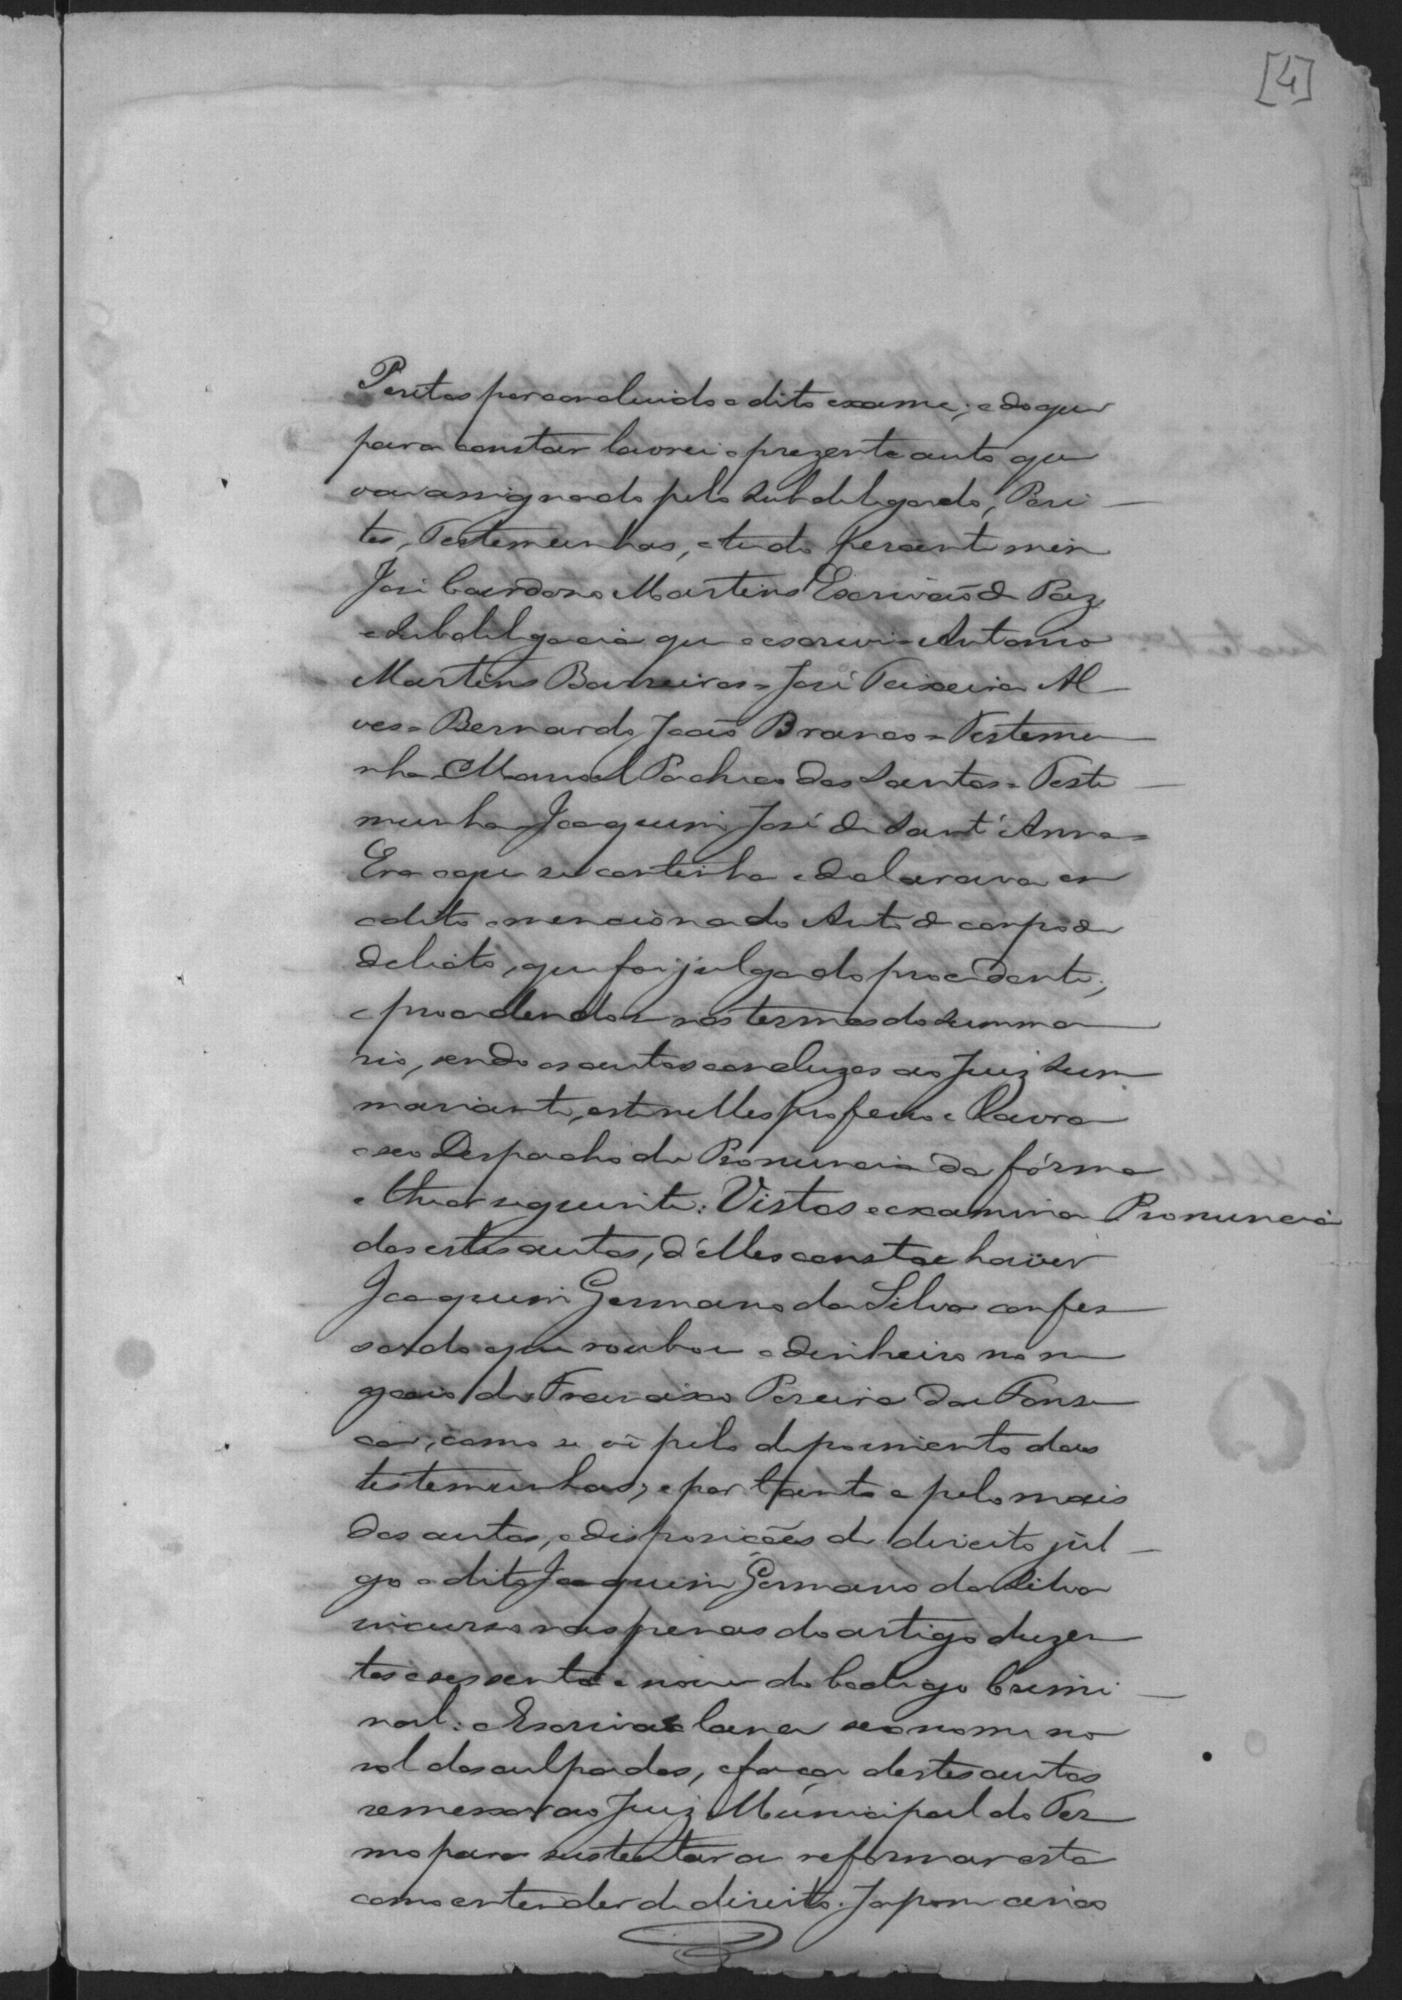 [4]
Peritos por concluido o dito exame; e do que
para constar lavrei o prezente auto que
vai assignado pelo Subdelegado, Peri-
tos, Testemunhas, e tudo perante mim
José Cardozo Martins Escrivaõ de Paz
e Subdelegacia que o escrivi = Antonio
Martins Barreiros = José Teixeira Al
ves = Bernardo Joaõ Branco = Testemu
nha Manoel Pacheco dos Santos = Teste-
munha Joaquim José de Sant'Anna =
Era o que se continha e declarava em
o dito e mencionado Auto de corpo de
delicto, que foi julgado procedente;
e procedendo-se nos termos do Summa
rio, sendo os autos concluzos ao Juiz Sum
mariante, este nelles proferio e lavra
o seo Despacho de Pronuncia da fórma
e theor seguinte: Vistos e examina
Pronuncia
dos estes autos, d'élles consta haver
Joaquim Germano da Silva confes
sado que roubou o dinheiro no ne
gocio de Francisco Pereira da Fonse
ca, como se vê pelo depoimento das
testemunhas; e por tanto e pelo mais
dos autos, e disposições de direito jul-
go o dito Joaquim Germano da Silva
incurso nas penas do artigo duzen
tos e sessenta e nove do Codigo Crimi-
nal: o Escrivaõ lance seo nome no
rol dos culpados, e faça destes autos
remessa ao Juiz Municipal do Ter
mo para sustentar ou reformar esta
como entender de direito. cinco